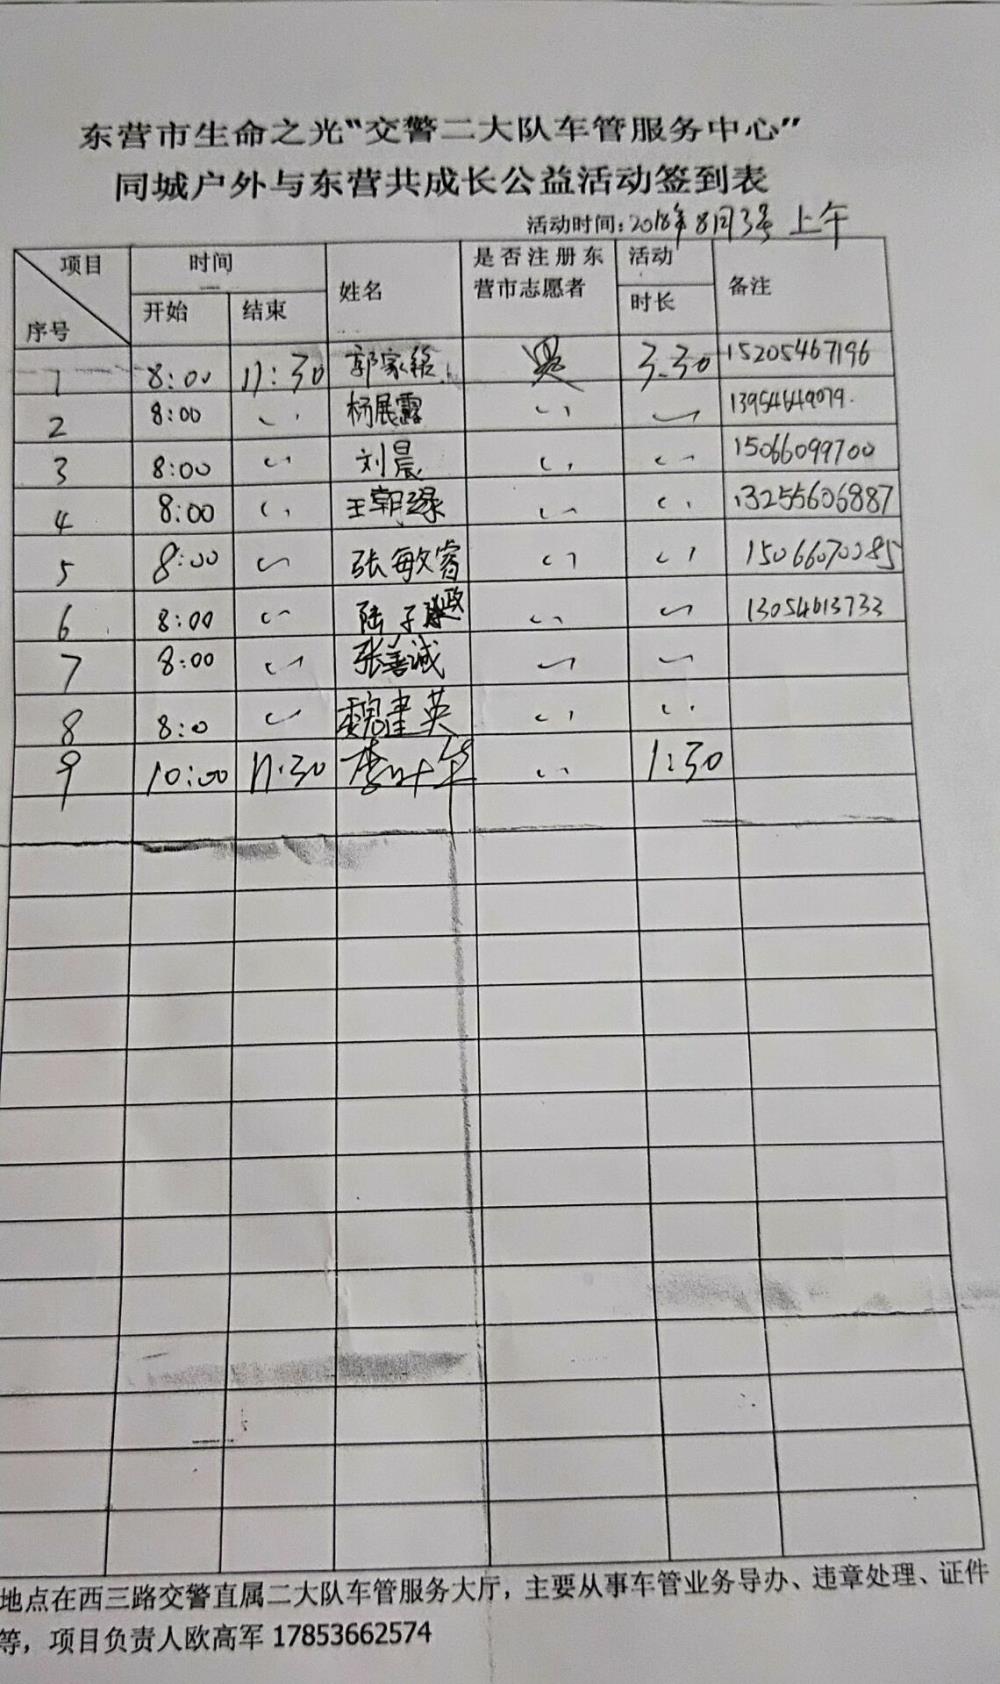 东营市生命之光“交警二大队车管服务中心”
同城户外与东营共成长公益活动签到表
活动时间:2018年8月3号 上午
项目 时间 姓名 是否注册东 活动 备注
营市志愿者
序号 开始 结束 时长
1 8:00 11:30 郭家 是 3.30 15205467196
2 8:00 〃 杨展露 〃 〃 13954649079.
3 8:00 〃 刘晨 〃 〃 15066099700
4 8:00 〃 王朝 〃 〃 13255606887
5 8:00 〃 张敏睿 〃 〃 15066070085
6 8:00 〃 陆子政 〃 〃 13054613733
7 8:00 〃 张善诚 〃 〃
8 8:0 〃 魏建英 〃 〃
9 10:00 11:30 李叶华 〃 1:30
地点在西三路交警直属二大队车管服务大厅，主要从事车管业务导办、违章处理、证件
等，项目负责人欧高军 17853662574